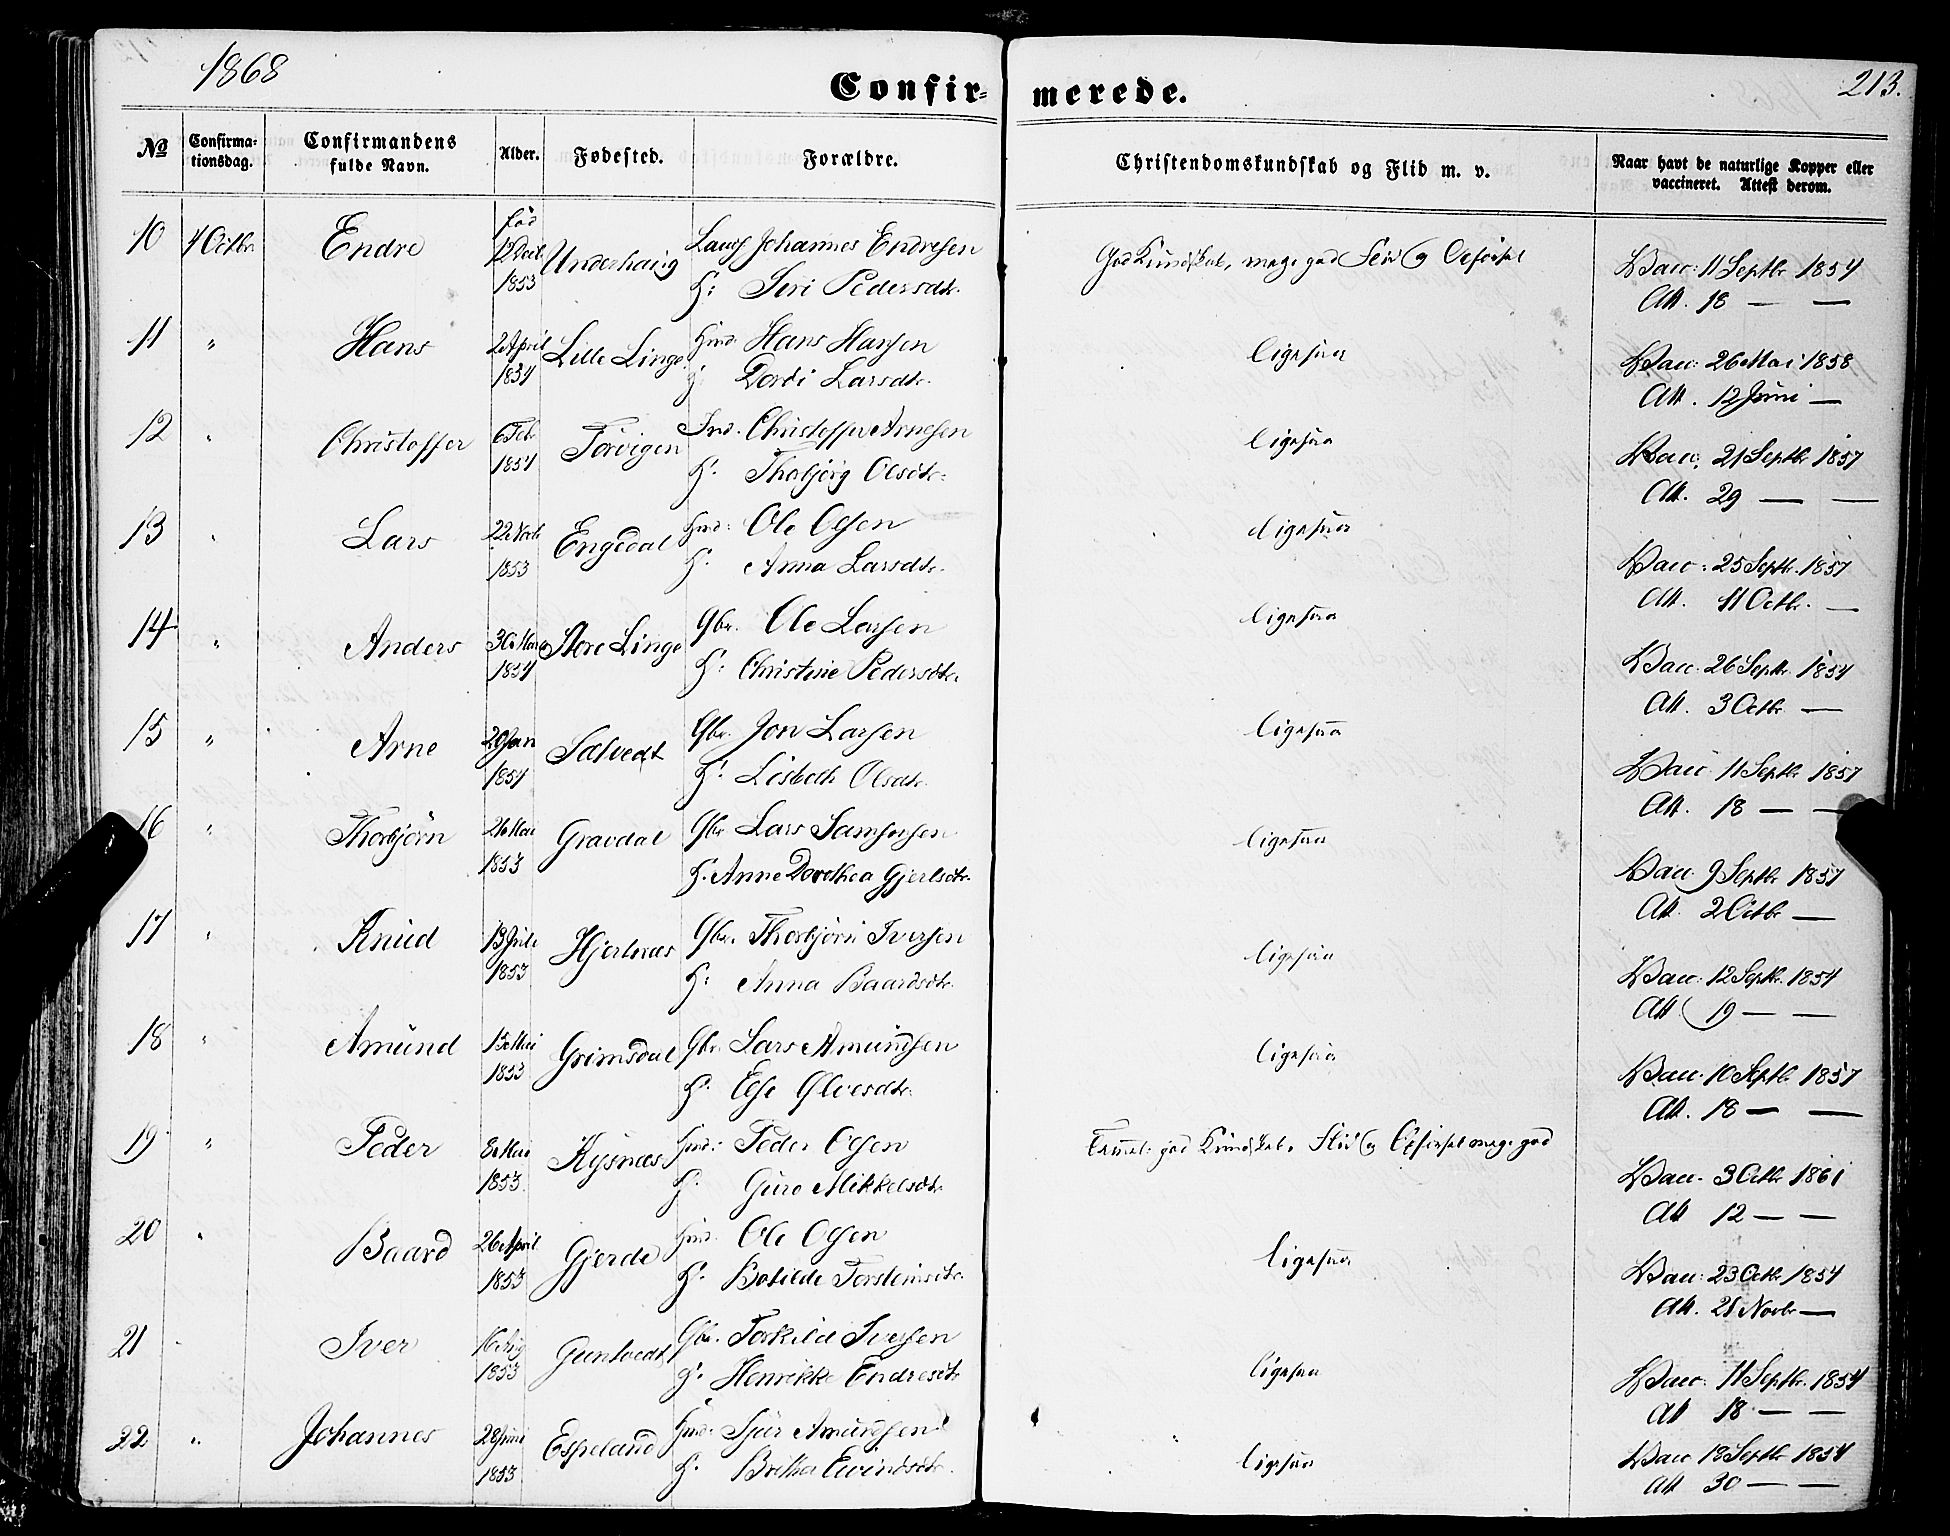 1868
Confir-
merede.
213.
No
Confirma-
tionsdag.
Confirmandens
fulde Navn.
Alder.
Fødested.
Forældre.
Christendomskundskab og Flid m. v.
Naar havt de naturlige Kopper eller
vaccineret. Attest derom.
10 4 Octbr. Endre
fød
12 Decb.
1853
Underhaug
Johannes Endresen
H: Siri Pedersdtr.
God Kundskab, meget god Flid og Opførsel
Vacc: 11 Septbr 1854
Att. 18 — —
11 " Hans
2 April
1854
Lille Linge
Hmd. Hans Hansen
H: Dordi Larsdtr.
ligesaa
Vacc: 26 Mai 1858
Att. 12 Juni —
12 " Christoffer
6 Feb
1854
Torvigen
Ind. Christoffer Arnesen
H: Thorbjørg Olsdtr.
ligesaa
Vacc. 21 Septbr 1857
Att. 29 — —
13 " Lars
22 Novb
1853
Engedal
Hmd: Ole Olsen
H: Anna Larsdtr.
ligesaa
Vacc: 25 Septbr. 1857
Att. 11 Octbr. —
14 " Anders
30 Marts
1854
Store Linge
Gbr. Ole Larsen
H: Christine Pedersdtr.
ligesaa
Vacc: 26 Septbr. 1854
Att. 3 Octbr —
15 " Arne
20 Jan
1854
Salvedt
Gbr. Jon Larsen
H: Lisbeth Olsdtr.
ligesaa
Vacc: 11 Septbr 1857
Att. 18 — —
16 " Thorbjørn
26 Mai
1853
Gravdal
Gbr. Lars Samsonsen
H. Anne Dorothea Gjertsdtr.
ligesaa
Vacc. 9 Septbr 1857
Att. 2 Octbr —
17 " Knud
13 Juli
1853
Hjertnæs
Gbr. Thorbjørn Iversen
H: Anna Baardsdtr.
ligesaa
Vacc: 12 Septbr. 1854
Att 19 — —
18 " Amund
15 Mai
1853
Grimsdal
Gbr. Lars Amundsen
H: Else
ligesaa
Vacc: 10 Septbr 1857
Att. 18 — —
19 " Peder
8 Mai
1853.
Kysnæs
Hmd: Peder Olsen
H. Guro Mikkelsdtr.
Temmel. god Kundskab, Flid og Opførsel meget god
Vacc. 3 Octbr 1861
Att 12 — —
20 " Baard
26 April
1853
Gjerde
Hmd. Ole Olsen
H: Botilde Torsteinsdtr.
ligesaa
Vacc: 23 Octbr 1854
Att. 21 Novbr —
21 " Iver
16 Aug
1853
Guntvedt
Gbr. Torkild Iversen
H: Henrikke Endresdtr
ligesaa
Vacc: 11 Septbr. 1854
Att 18 — —
22 " Johannes
28 Juni
1853
Espeland
Hmd: Sjur Amundsen
H. Brita Eivindsdtr.
ligesaa
Vacc 18 Septbr 1854
Att 30 — —